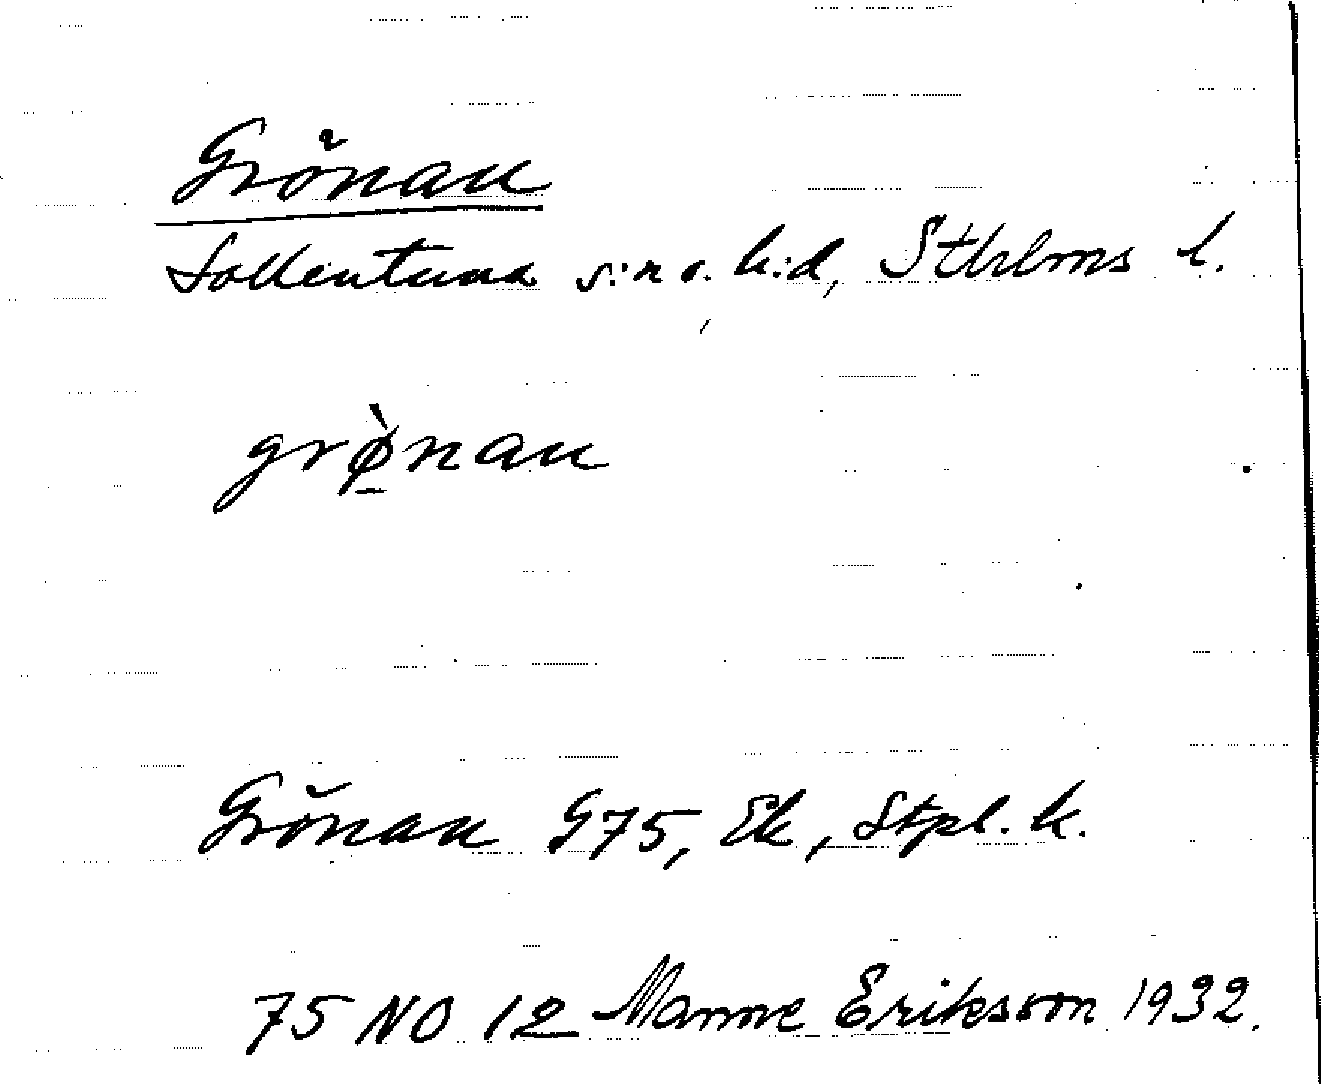 Grönan
Sollentuna s:n o. h:d, Sthlms l.
grø̀nan
Grönan G75, Ek, Stpl. k.
75 NO 12 Manne Eriksson 1932.